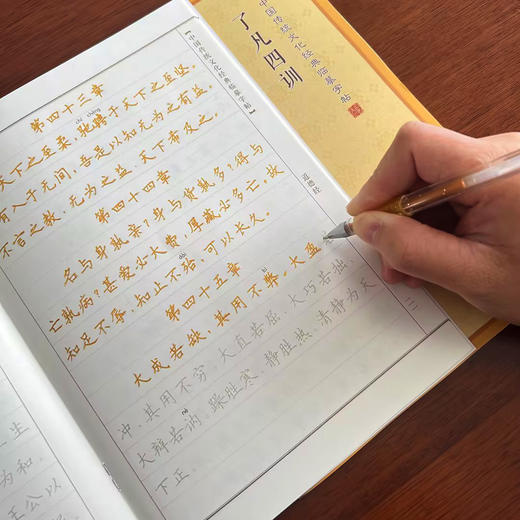 中国传统文化经典临摹字帖
了凡四训
【中国传统文化经典临摹字帖】
道德经
第四十三章
chí chěng
天下之至柔，驰骋于天下之至坚。
有入于无间，吾是以知无为之有益。
不言之教，无为之益，天下希及之。
第四十四章
名与身孰亲？身与货孰多？得与
亡孰病？甚爱必大费，厚藏必多亡。故
知足不辱，知止不殆，可以长久。
第四十五章
大成若缺，其用不弊。大盈若
冲，其用不穷。大直若屈，大巧若拙，
大辩若讷。躁胜寒，静胜热。清静为天
下正。
生
为和
王公以